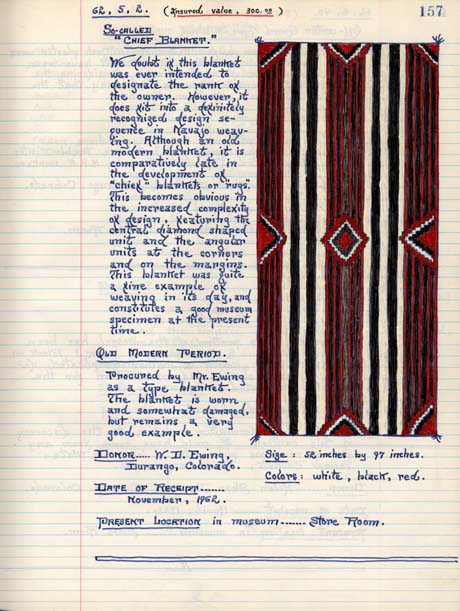 62, 5, 2. (Insured value, 300.00)
157
So-called
"Chief Blanket."
We doubt if this blanket
was ever intended to
designate the rank of
the owner. However, it
does fit into a definitely
recognized design se-
quence in Navajo weav-
ing. Although an old
modern blanket, it is
comparatively late in
the development of
"chief" blankets or "rugs".
This becomes obvious in
the increased complexity
of design, featuring the
central diamond shaped
unit and the angular
units at the corners
and on the margins.
This blanket was quite
a fine example of
weaving in its day, and
constitutes a good museum
specimen at the present
time.
Old Modern Period.
Procured by Mr. Ewing
as a type blanket.
The blanket is worn
and somewhat damaged,
but remains a very
good example.
Donor..... W. D. Ewing,
Durango, Colorado.
Size: 52 inches by 97 inches.
Colors: white, black, red.
Date of Receipt.......
November, 1962.
Present Location in museum....... Store Room.